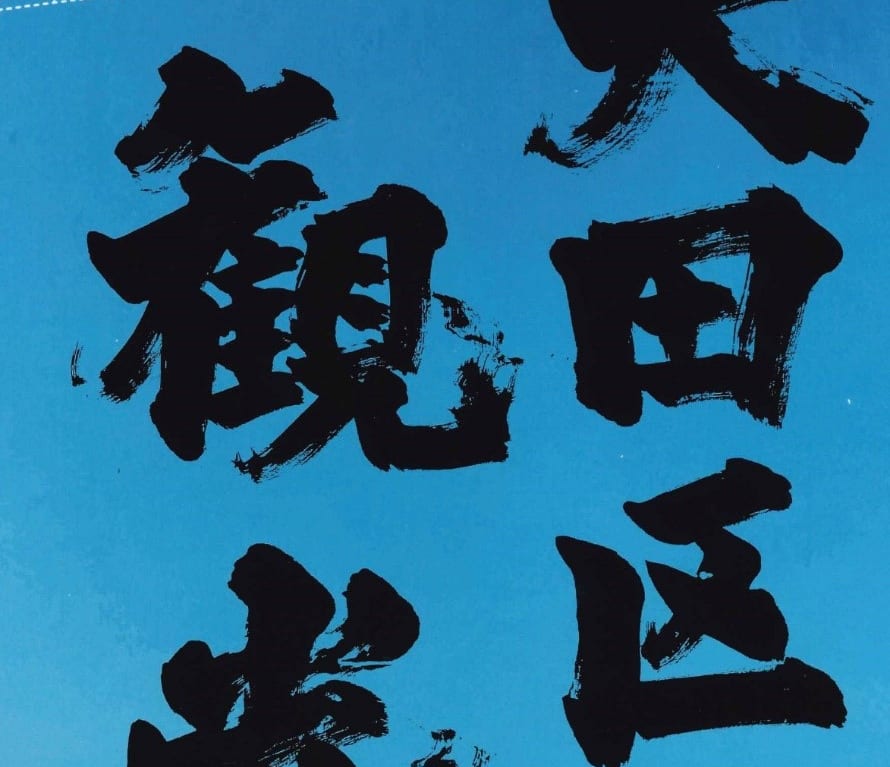 大田区
観光